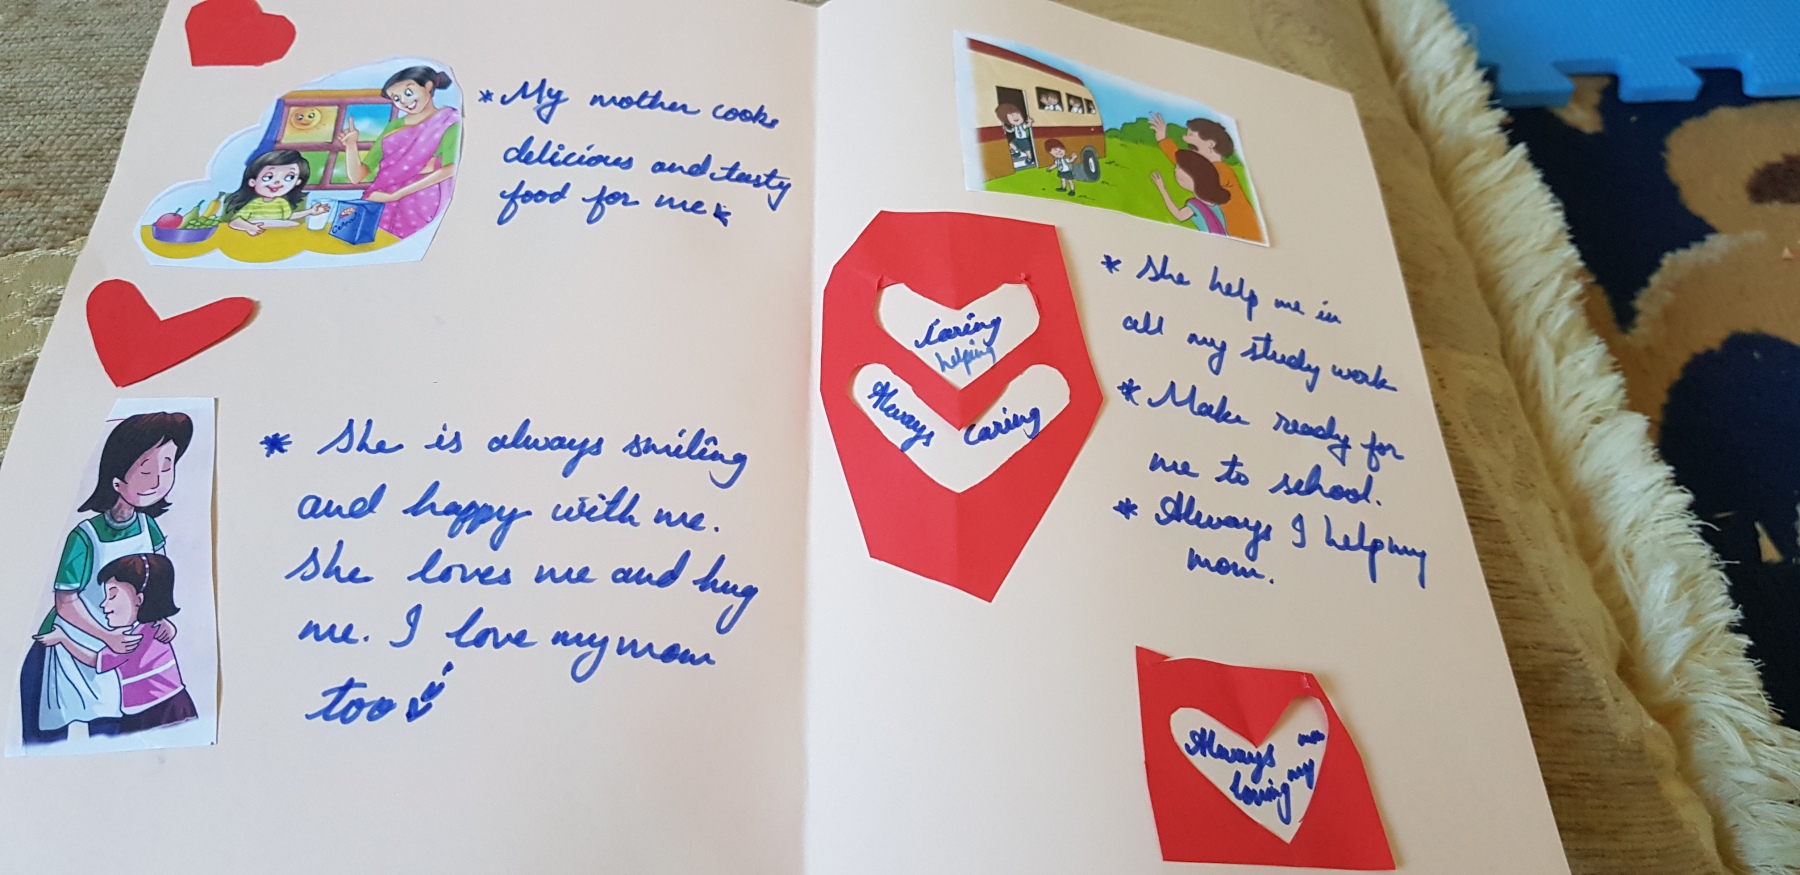 * My mother cooks
delicious and tasty
food for me *
* She is always smiling
and happy with me.
She loves me and hug
me. I love my mom
too
Caring
helping
Always caring
* She help me in
all my study work
* Make ready for
me to school.
* Always I help my
mom.
Always
loving my